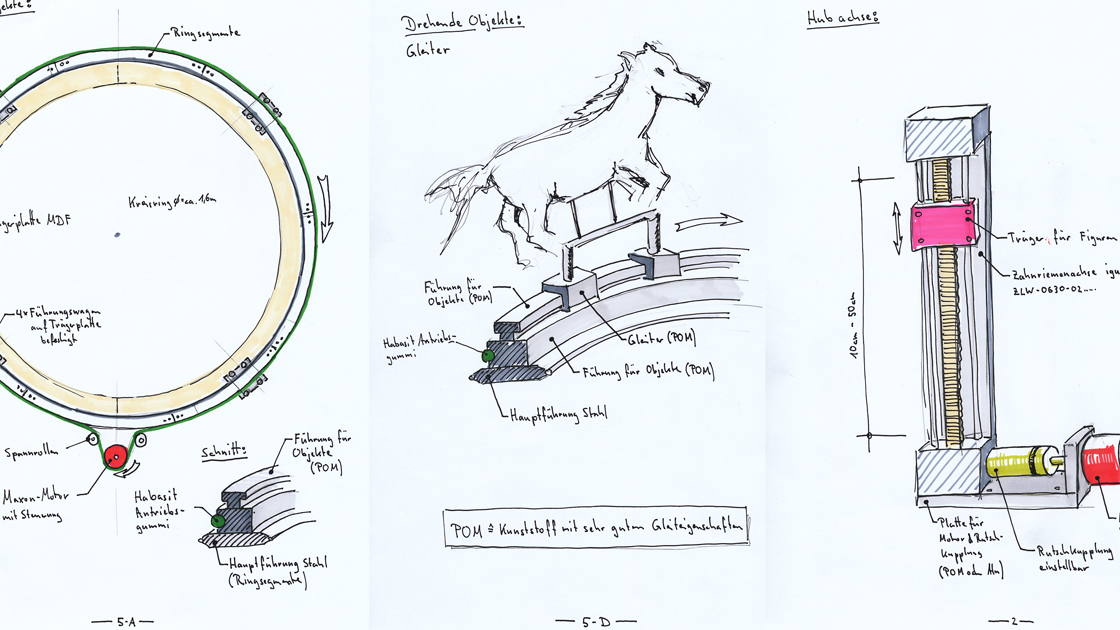 jekte:
Ringsegmente
Kreisring Ø ca. 1,6m
gerplatte MDF
4x Führungswagen
auf Trägerplatte
befestigt
Spannrollen
Maxon-Motor
mit Steuerung
Schnitt:
Führung für
Objekte
(POM)
Habasit
Antriebs-
gummi
Hauptführung Stahl
(Ringsegmente)
5-A
Drehende Objekte:
Gleiter
Führung für
Objekte (POM)
Habasit Antriebs-
gummi
Gleiter (POM)
Führung für Objekte (POM)
Hauptführung Stahl
POM ≙ Kunststoff mit sehr guten Gleiteigenschaften
5-D
Hubachse:
Träger für Figuren
Zahnriemenachse igu
ZLW-0630-02....
10cm - 50cm
Platte für
Motor & Rutsch-
kupplung
(POM oder Alu)
Rutschkupplung
einstellbar
2